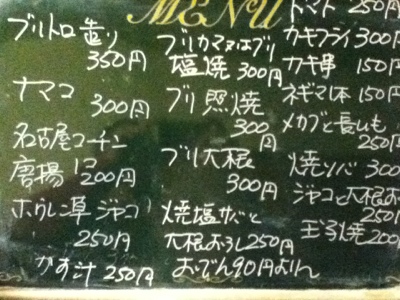 MENU
ブリトロ造り
350円
ナマコ
300円
名古屋コーチン
唐揚 200円
ホウレン草ジャコ
250円
かす汁 250円
ブリカマ
塩焼 300円
ブリ照焼
300円
ブリ大根
300円
焼塩サバと
大根おろし250円
おでん90円より
トマト 250円
カキフライ300円
カキ串 150円
ネギま1本 150円
メカブと長いも
250円
焼ソバ 300
ジャコと大根お
250円
玉子焼200